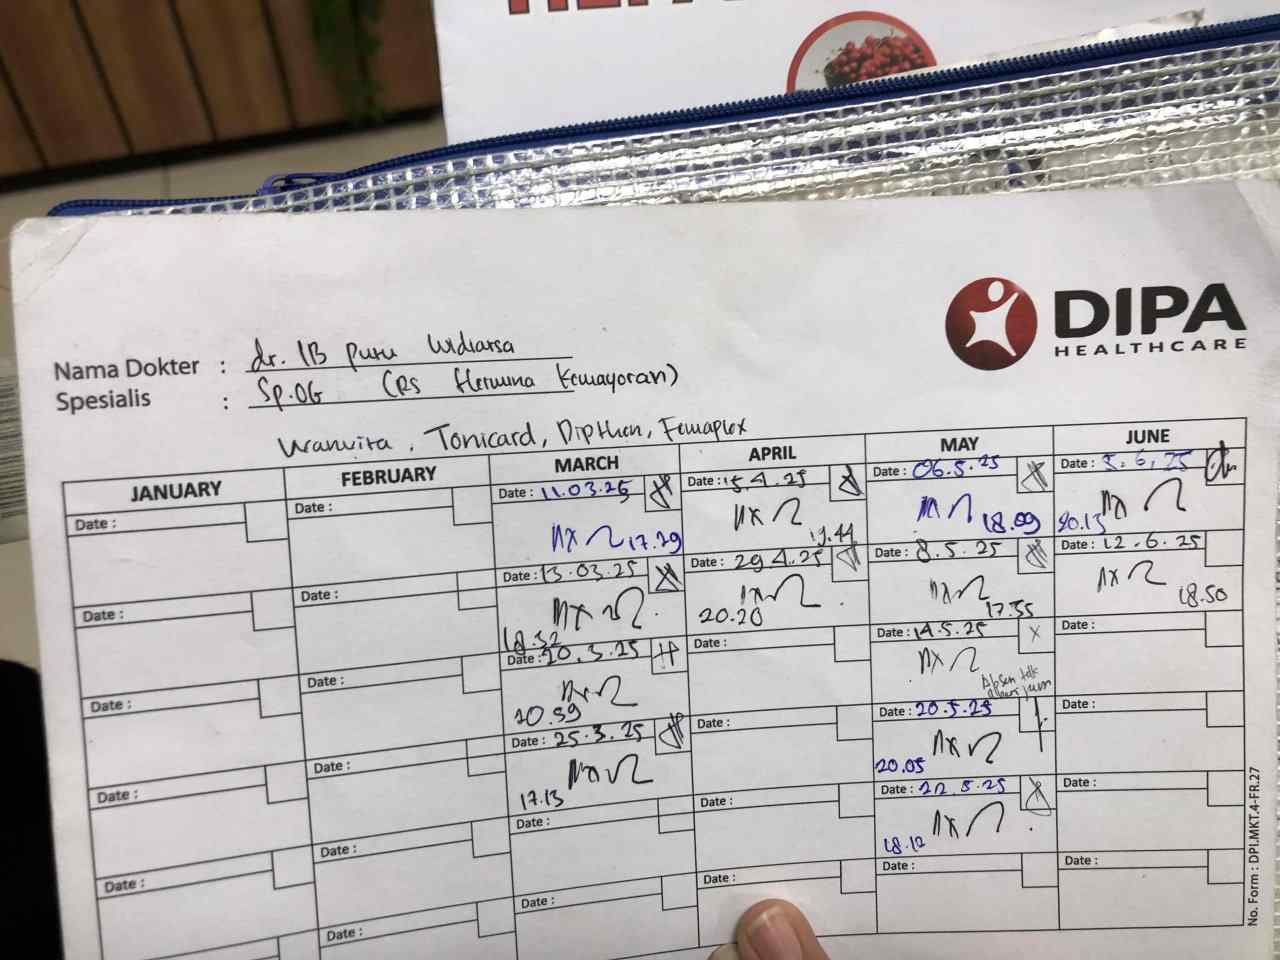 DIPA
HEALTHCARE
Nama Dokter : dr. IB Putu Widiarsa
Spesialis : Sp.OG (RS Hermina Kemayoran)
Wanvita, Tonicard, Dipthen, Femaplex
JANUARY FEBRUARY MARCH APRIL MAY JUNE
Date : Date : Date : 11.03.25 Date : 15.4.25 Date : 06.5.25 Date : 3.6.25
17.29 19.44 18.09 20.15
Date : Date : Date : 13.03.25 Date : 29.4.25 Date : 8.5.25 Date : 12.6.25
18.32 20.20 17.55 18.50
Date : Date : Date : 20.3.25 Date : Date : 14.5.25 Date :
20.59 Absen
Date : Date : Date : 25.3.25 Date : Date : 20.5.25 Date :
17.13 20.05
Date : Date : Date : Date : Date : 22.5.25 Date :
18.12
Date : Date : Date : Date : Date :
No. Form : DPI.MKT.4-FR.27